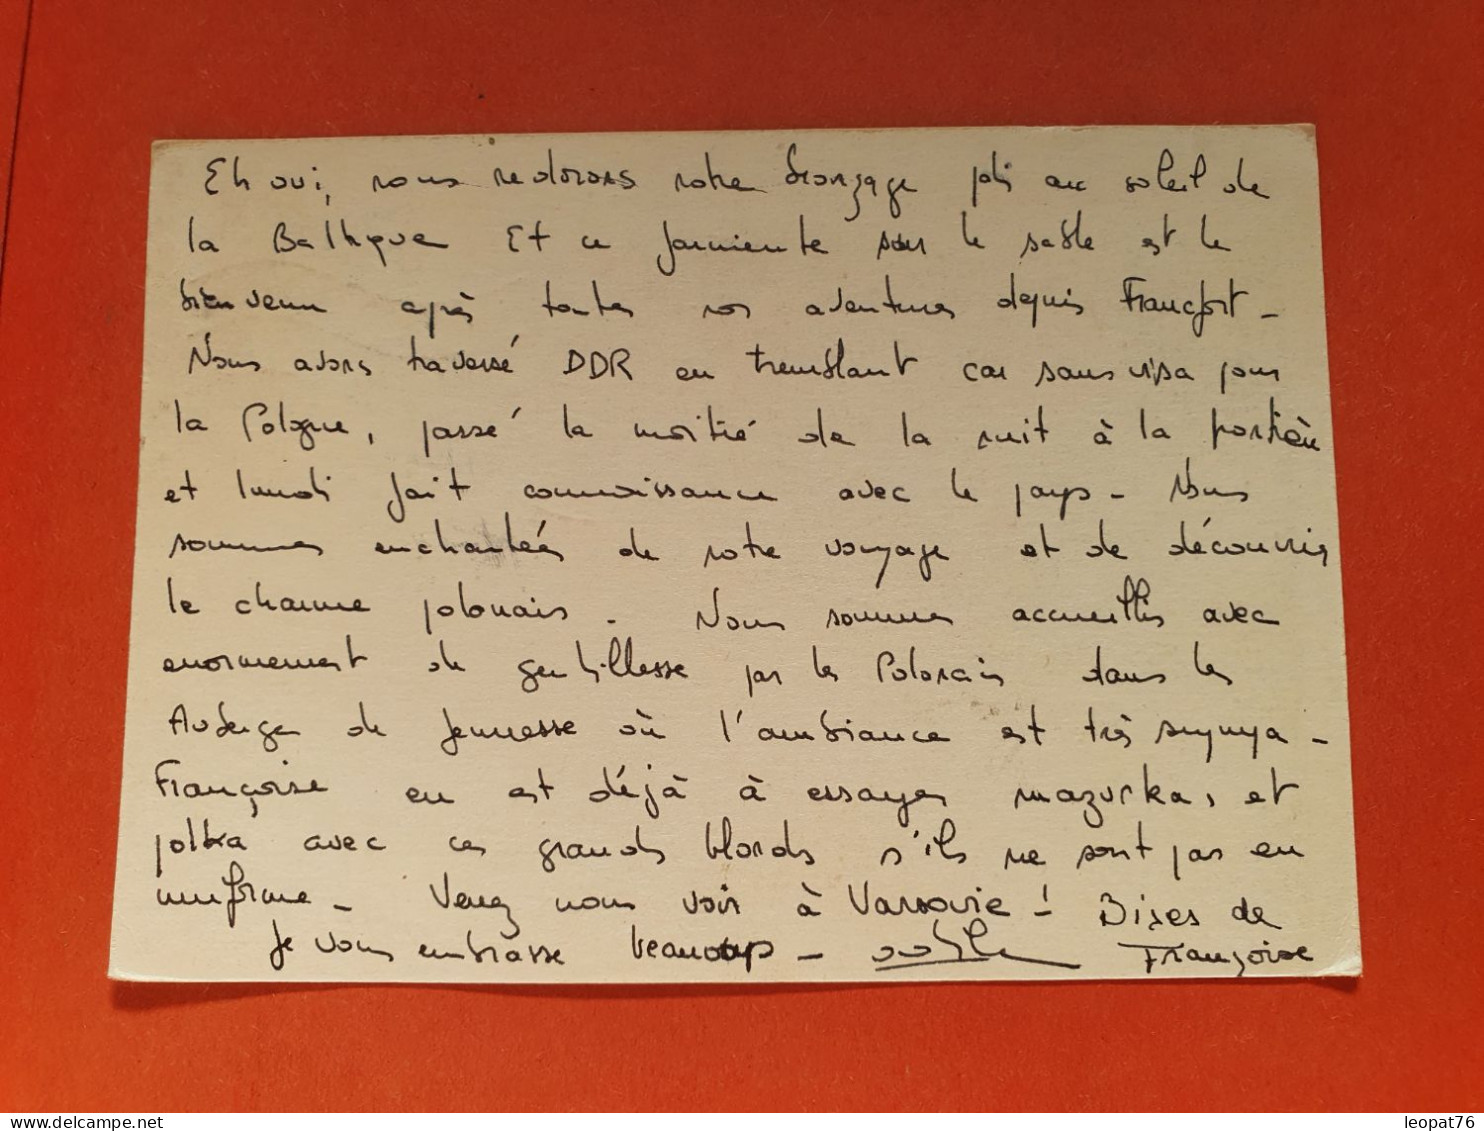 Eh oui, nous redorons notre bronzage pâli au soleil de
la Baltique Et ce farniente sur le sable est le
bienvenu après toutes nos aventures depuis Francfort -
Nous avons traversé DDR en tremblant car sans visa pour
la Pologne, passé la moitié de la nuit à la portière
et lundi fait connaissance avec le pays - Nous
sommes enchantées de notre voyage et de découvrir
le charme polonais. Nous sommes accueillis avec
enormement de gentillesse par les Polonais dans les
Auberge de Jeunesse où l'ambiance est très sympa -
Françoise en est déjà à essayer mazurka, et
polka avec ces grands blonds s'ils ne sont pas en
uniforme - Venez nous voir à Varsovie ! Bises de
Je vous embrasse beaucoup - Françoise
leopat76